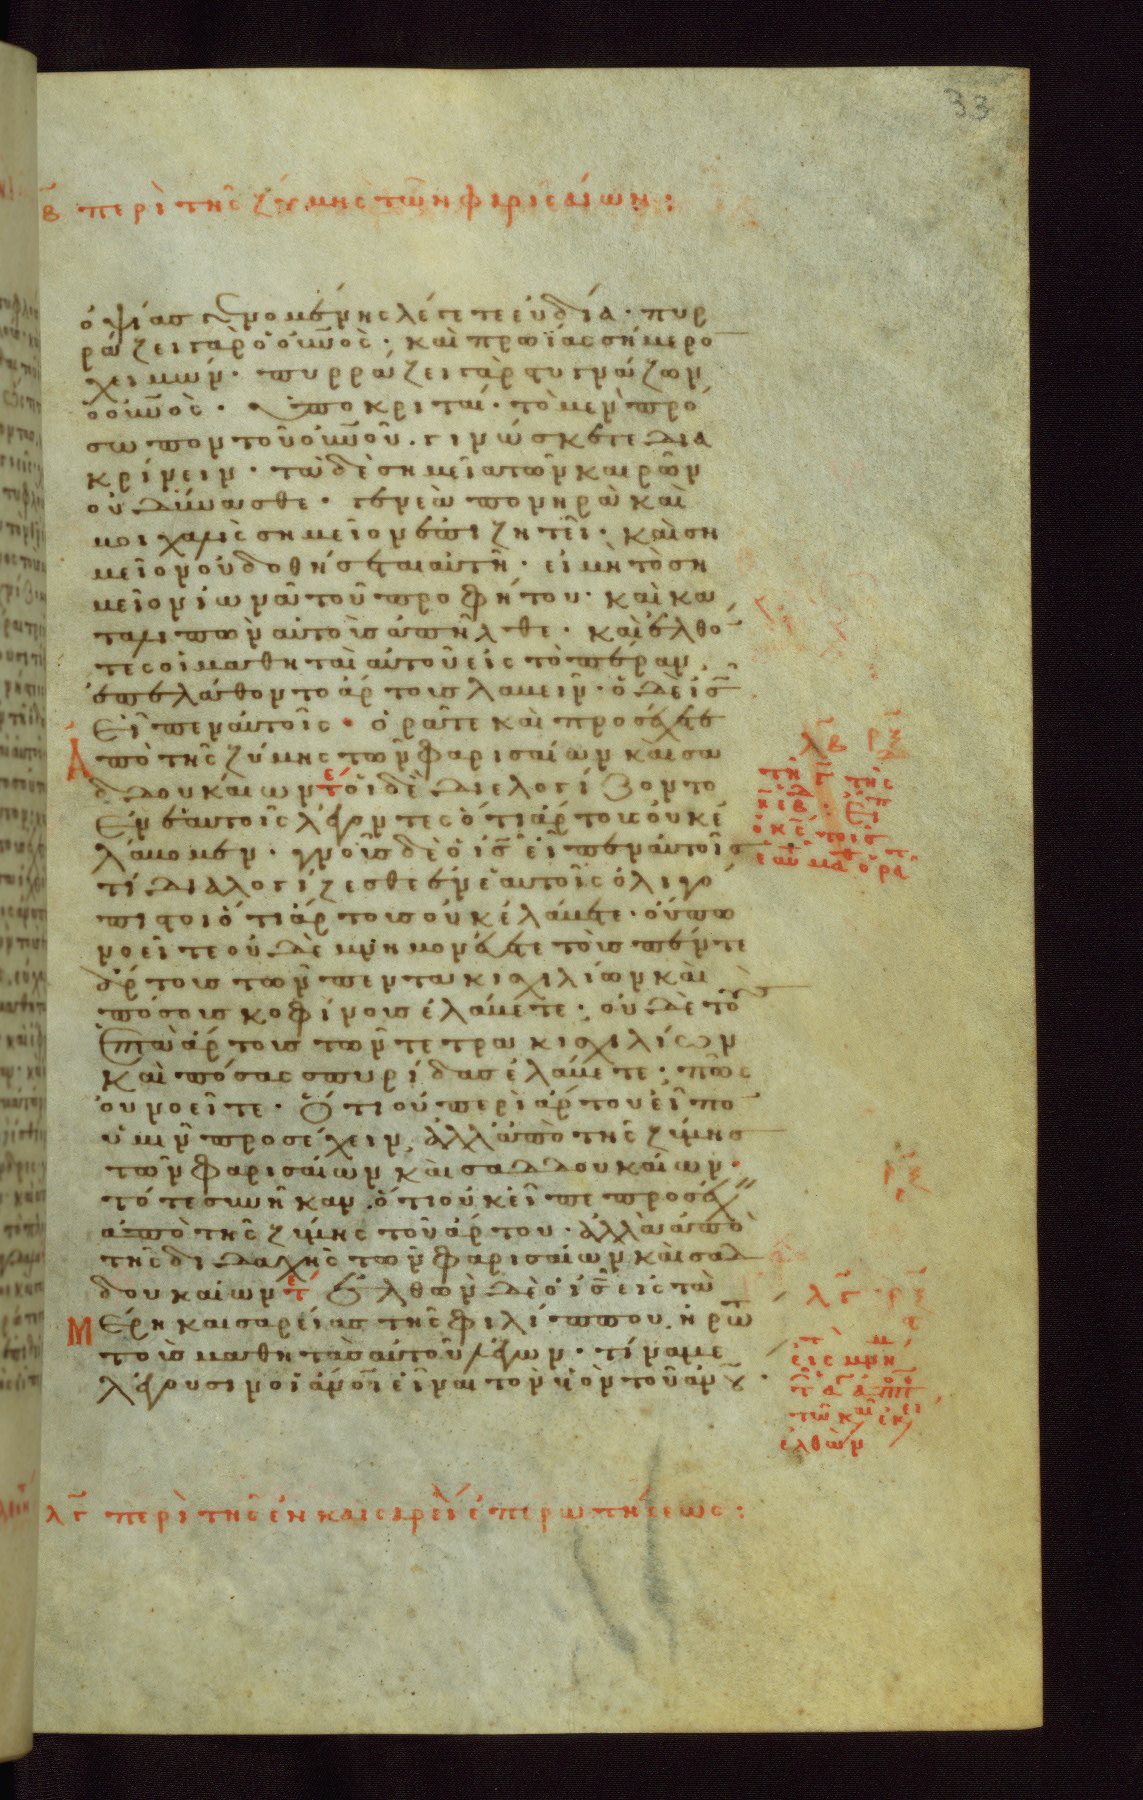 33
β περὶ τῆς ζύμης τῶν φαρισαίων :
ὀψίας γενομένης λέγετε εὐδία · πυρ
ράζει γὰρ ὁ οὐ̅νο̅ς · καὶ πρωΐας σήμερο̅
χειμών · πυρράζει γὰρ στυγνάζων
ὁ οὐ̅νο̅ς · ὑποκριταί · τὸ μὲν πρό
σωπον τοῦ οὐ̅νο̅ῦ · γινώσκετε δια
κρίνειν · τὰ δὲ σημεῖα τῶν καιρῶν
οὐ δύνασθε · γενεὰ πονηρὰ καὶ
μοιχαλὶς σημεῖον ἐπιζητεῖ · καὶ ση
μεῖον οὐ δοθήσεται αὐτῆ · εἰ μὴ τὸ ση
μεῖον ἰωνᾶ τοῦ προφήτου · καὶ κα
ταλιπὼν αὐτοὺς ἀπῆλθε · καὶ ἐλθό̅
τες οἱ μαθηταὶ αὐτοῦ εἰς τὸ πέραν ·
ἐπελάθοντο ἄρτους λαβεῖν · ὁ δὲ ἰ̅ς̅
εἶπεν αὐτοῖς · ὁρᾶτε καὶ προσέχετε
ἀπὸ τῆς ζύμης τῶν φαρισαίων καὶ σα
δδουκαίων τέ οἱ δὲ διελογίζοντο
ἐν ἑαυτοῖς λέγοντες ὅτι ἄρτους οὐκ ἐ
λάβομεν · γνοὺς δὲ ὁ ἰ̅ς̅ εἶπεν αὐτοῖς
τί διαλογίζεσθε ἐν ἑαυτοῖς ὀλιγό
πιστοι ὅτι ἄρτους οὐκ ἐλάβετε · οὔπω
νοεῖτε οὐδὲ μνημονεύετε τοὺς πέντε
ἄρτους τῶν πεντακισχιλίων καὶ
πόσους κοφίνους ἐλάβετε · οὐδὲ τοὺς
ἑπτὰ ἄρτους τῶν τετρακισχιλίων
καὶ πόσας σπυρίδας ἐλάβετε · πῶς
οὐ νοεῖτε · ὅτι οὐ περὶ ἄρτου εἶπο̅
ὑμῖν προσέχειν ἀλλ' ἀπὸ τῆς ζύμης
τῶν φαρισαίων καὶ σαδδουκαίων ·
τότε συνῆκαν ὅτι οὐκ εἶπε προσέχ
ἀπὸ τῆς ζύμης τοῦ ἄρτου · ἀλλὰ ἀπὸ
τῆς διδαχῆς τῶν φαρισαίων καὶ σαδ
δουκαίων τέ ἐλθὼν δὲ ὁ ἰ̅ς̅ εἰς τὰ
μέρη καισαρείας τῆς φιλίππου · ἠρώτ
τοὺς μαθητὰς αὐτοῦ λέγων · τίνα με
λέγουσιν οἱ ἄνο̅ι εἶναι τὸν υἱὸν τοῦ ἀνο̅υ ·
λβ
τῆ γ τῆς
λγ
ἐλθὼν
λγ περὶ τῆς ἐν καισαρεία ἐπερωτήσεως :